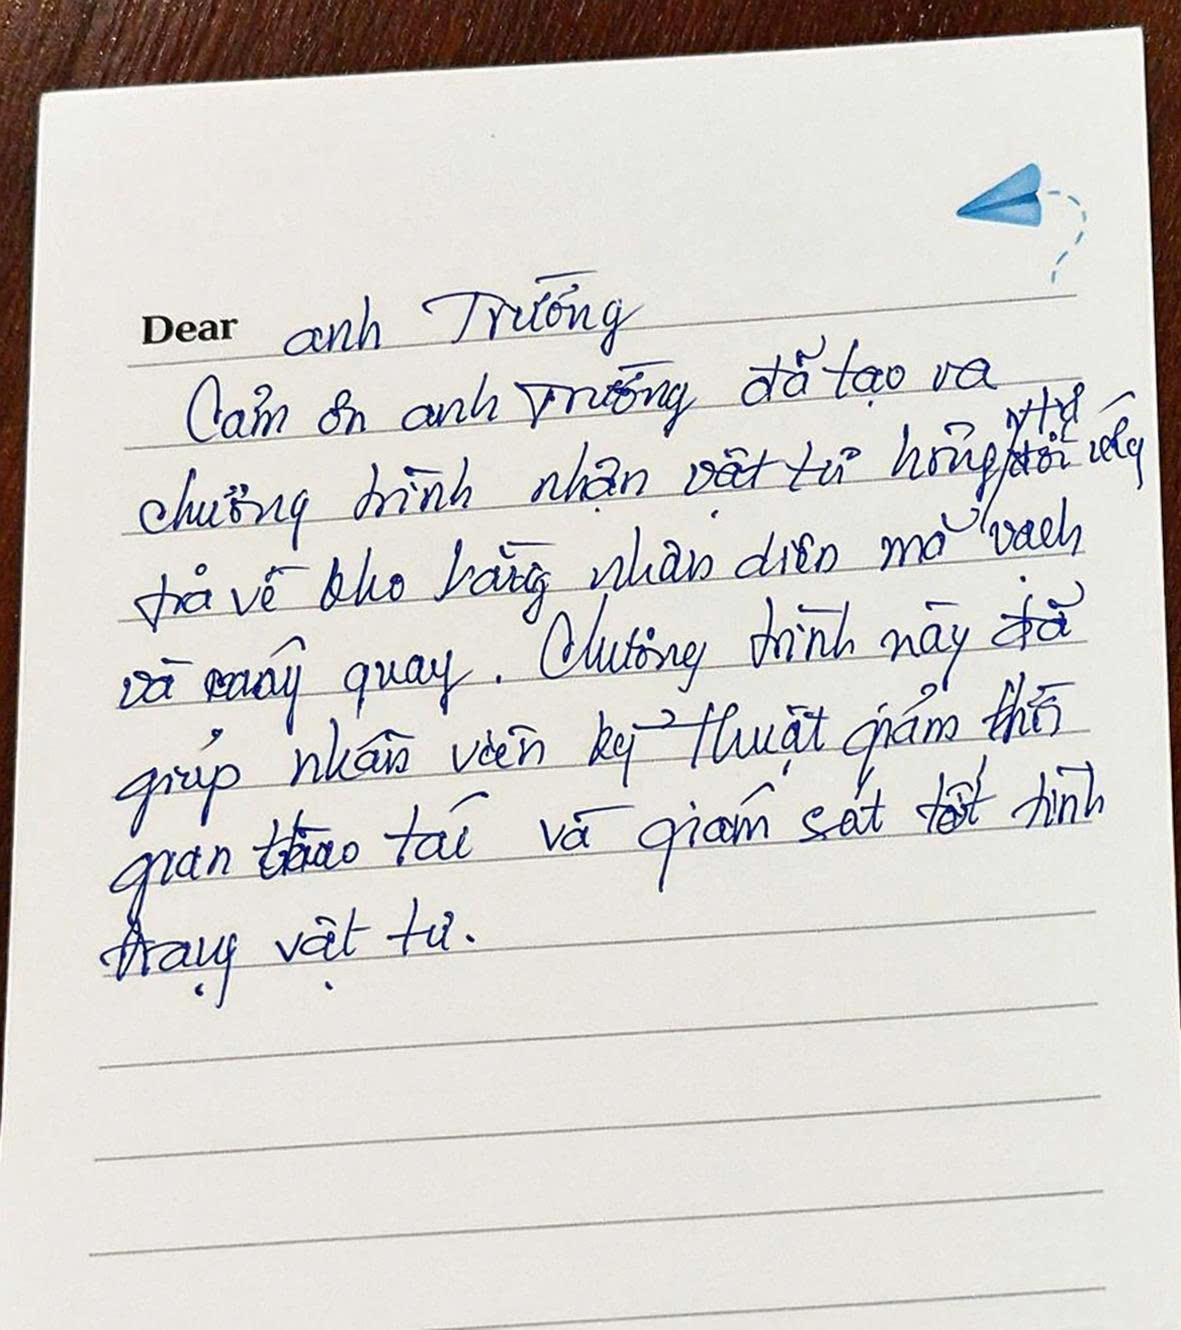 Dear anh Trường
Cảm ơn anh Trường đã tạo ra
chương trình nhận vật tư hỏng,
trả về kho bằng nhận diện mã vạch
và máy quay. Chương trình này đã
giúp nhân viên kỹ thuật giảm thời
gian thao tác và giám sát tốt tình
trạng vật tư.